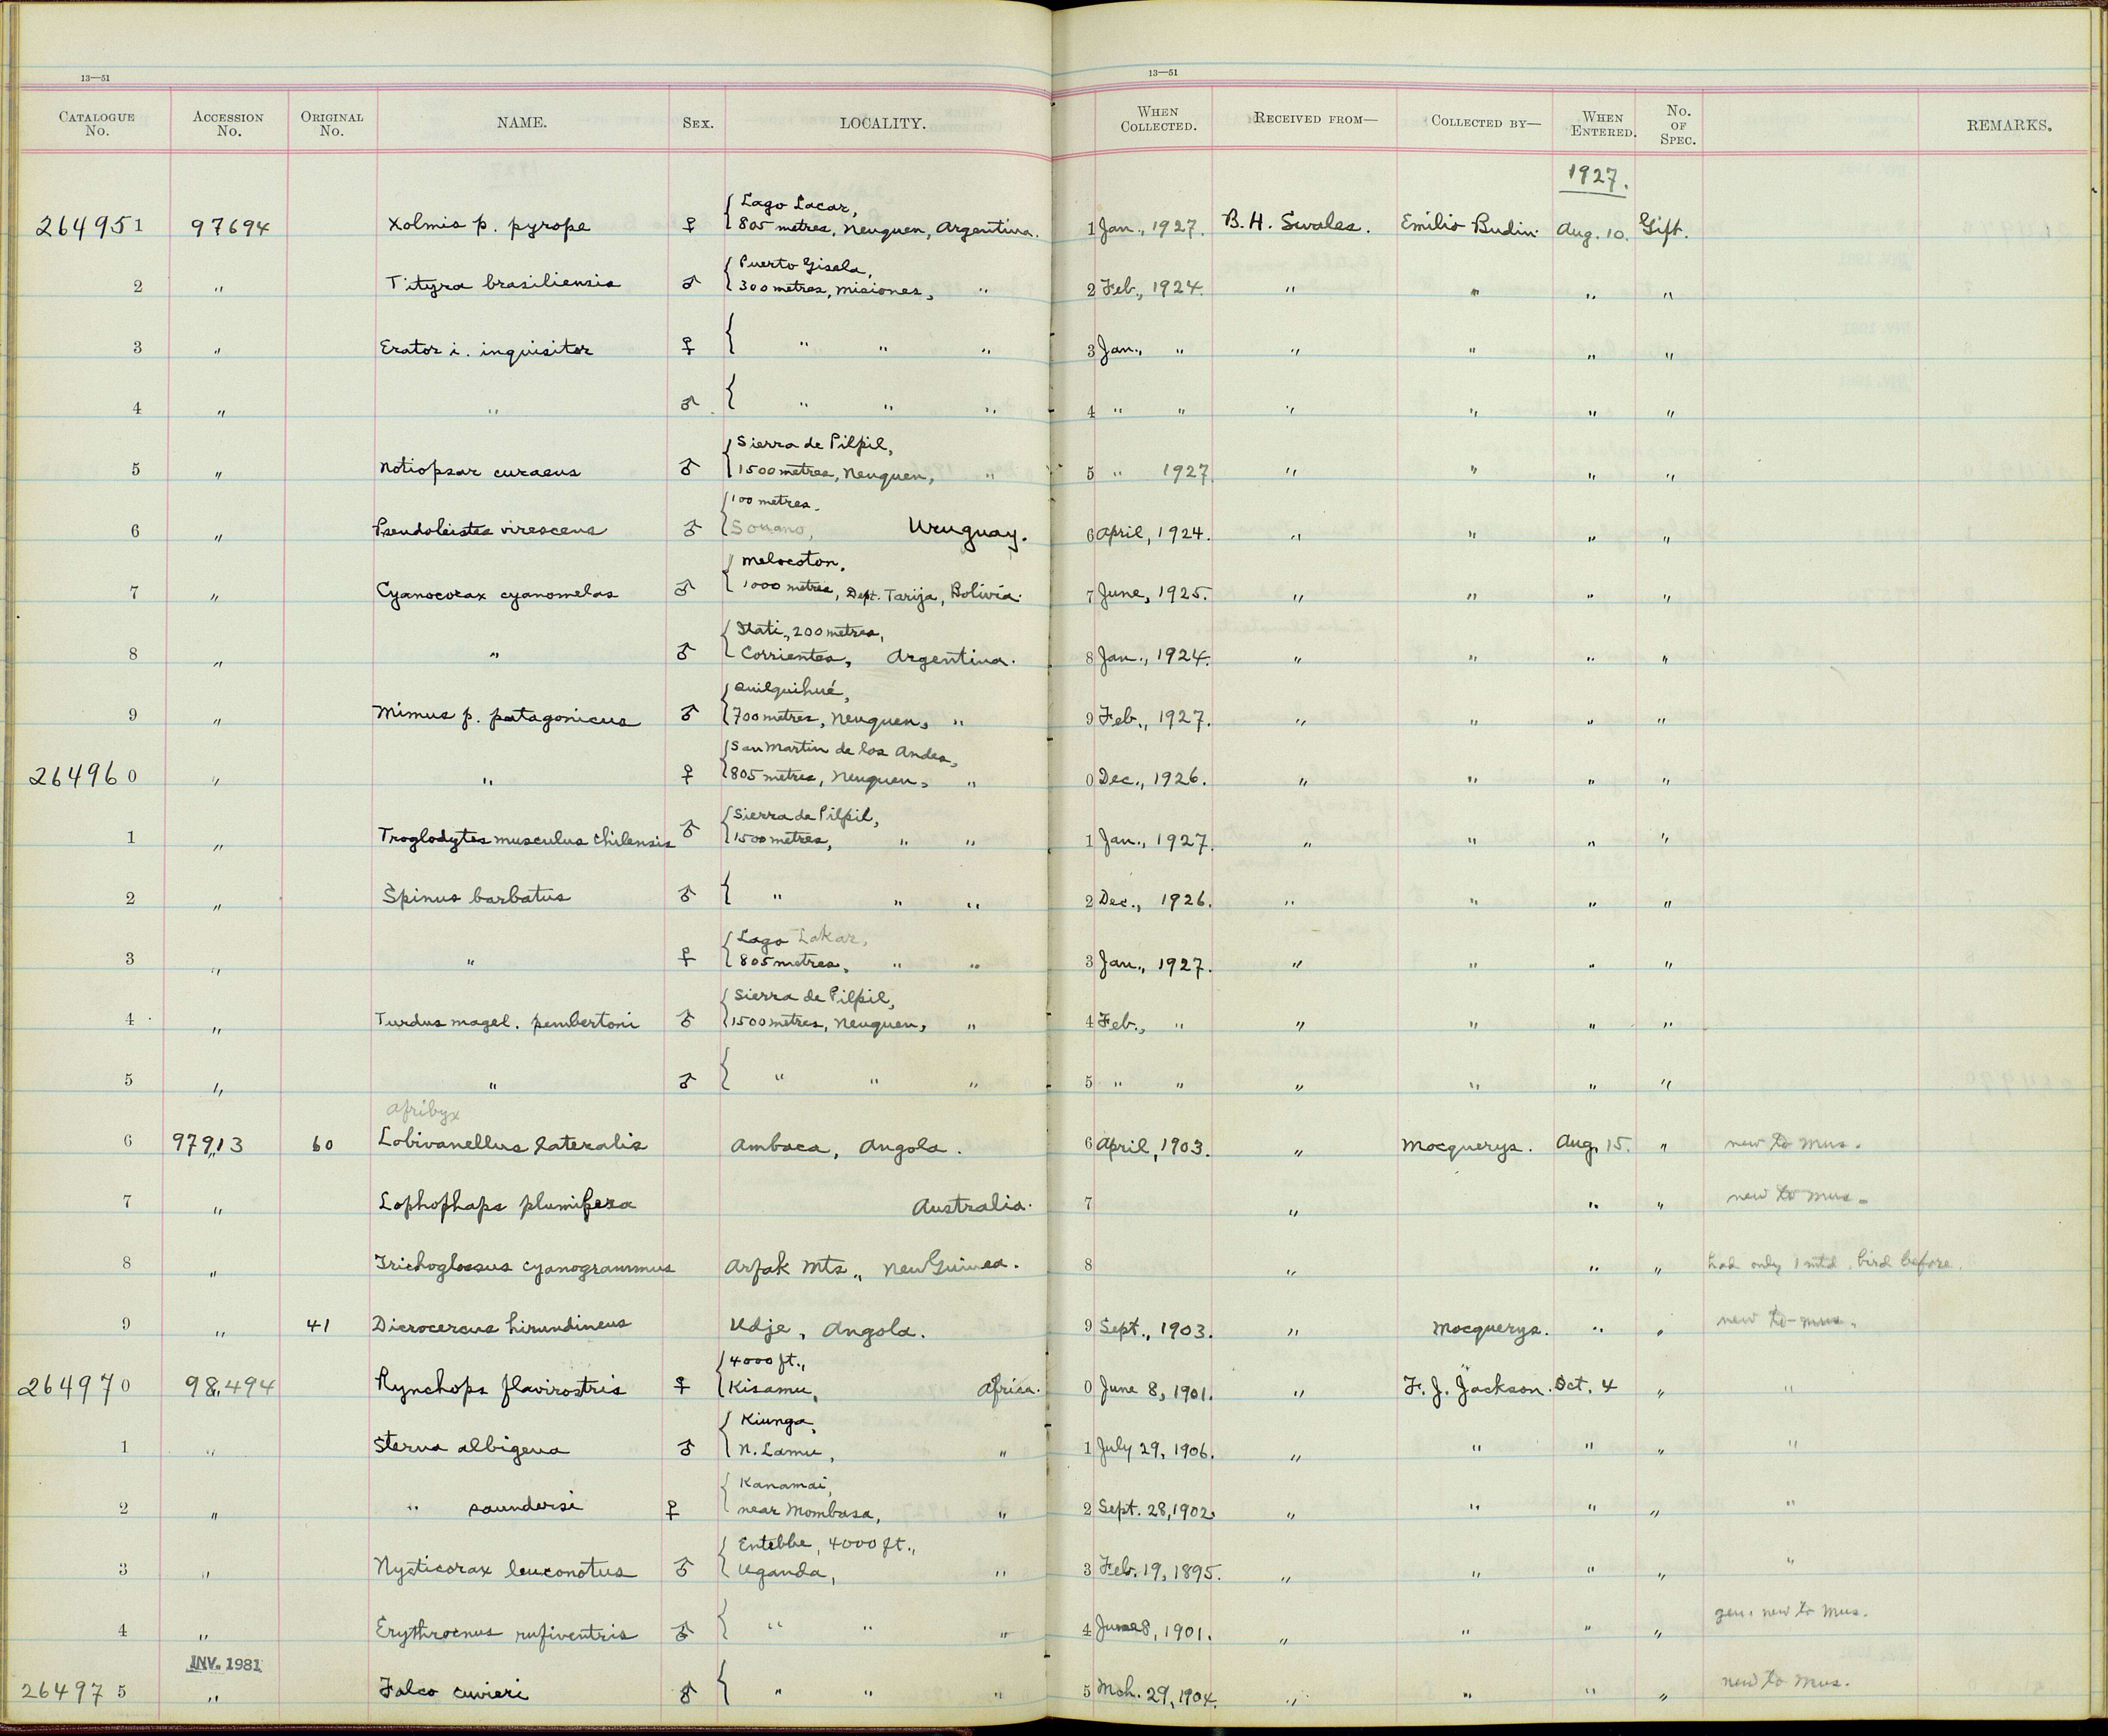 13—51
13—51
CATALOGUE No. ACCESSION No. ORIGINAL No. NAME. SEX. LOCALITY. WHEN COLLECTED. RECEIVED FROM— COLLECTED BY— WHEN ENTERED. No. OF SPEC. REMARKS.
1927.
Lago Lacar,
264951 97694 Xolmis p. pyrope ♀ 805 metres, Neuquen, Argentina. 1 Jan., 1927. B. H. Swales. Emilio Budin. Aug. 10. Gift.
Puerto Gisela,
2 " Tityra brasiliensis ♂ 300 metres, Misiones, " 2 Feb., 1924. " " " "
3 " Erator i. inquisitor ♀ " " " 3 Jan., " " " " "
4 " " ♂ " " " 4 " " " " " "
Sierra de Pilpil,
5 " Notiopsar curaeus ♂ 1500 metres, Neuquen, " 5 " 1927 " " " "
100 metres.
6 " Pseudoleistes virescens ♂ Uruguay. 6 April, 1924. " " " "
Melocoton,
7 " Cyanocorax cyanomelas ♂ 1000 metres, Dept. Tarija, Bolivia. 7 June, 1925. " " " "
Itati, 200 metres,
8 " " ♂ Corrientes, Argentina. 8 Jan., 1924. " " " "
Quilquihué,
9 " Mimus p. patagonicus ♂ 700 metres, Neuquen, " 9 Feb., 1927. " " " "
San Martin de los Andes,
264960 " " ♀ 805 metres, Neuquen, " 0 Dec., 1926. " " " "
Sierra de Pilpil,
1 " Troglodytes musculus chilensis ♂ 1500 metres, " " 1 Jan., 1927. " " " "
2 " Spinus barbatus ♂ " " " 2 Dec., 1926. " " " "
Lago Lakar,
3 " " ♀ 805 metres, " " 3 Jan., 1927. " " " "
Sierra de Pilpil,
4 " Turdus magel. pembertoni ♂ 1500 metres, Neuquen, " 4 Feb., " " " " "
5 " " ♂ " " " 5 " " " " " "
afribyx
6 97913 60 Lobivanellus lateralis Ambaca, Angola. 6 April, 1903. " Mocquerys. Aug. 15. " new to mus.
7 " Lophophaps plumifera Australia. 7 " " " new to mus.
8 " Trichoglossus cyanogrammus Arfak Mts., New Guinea. 8 " " " had only 1 mtd. bird before.
9 " 41 Dicrocercus hirundineus Udje, Angola. 9 Sept., 1903. " Mocquerys. " " new to mus.
4000 ft.,
264970 98,494 Rynchops flavirostris ♀ Kisamu, Africa. 0 June 8, 1901. " F. J. Jackson. Oct. 4 " "
Kiunga,
1 " Sterna albigena ♂ N. Lamu, " 1 July 29, 1906. " " " " "
Kanamai,
2 " " saundersi ♀ near Mombasa, " 2 Sept. 28, 1902. " " " " "
Entebbe, 4000 ft.,
3 " Nycticorax leuconotus ♂ Uganda, " 3 Feb. 19, 1895. " " " " "
4 " Erythrocnus rufiventris ♂ " " " 4 June 8, 1901. " " " " gen. new to Mus.
INV. 1981
264975 " Falco cuvieri ♂ " " " 5 Mch. 29, 1904. " " " " new to Mus.